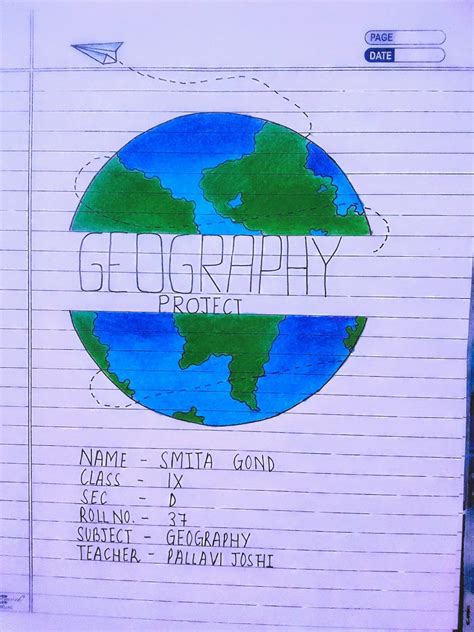 PAGE
DATE
GEOGRAPHY
PROJECT
NAME - SMITA GOND
CLASS - IX
SEC - D
ROLL NO. - 37
SUBJECT - GEOGRAPHY
TEACHER - PALLAVI JOSHI